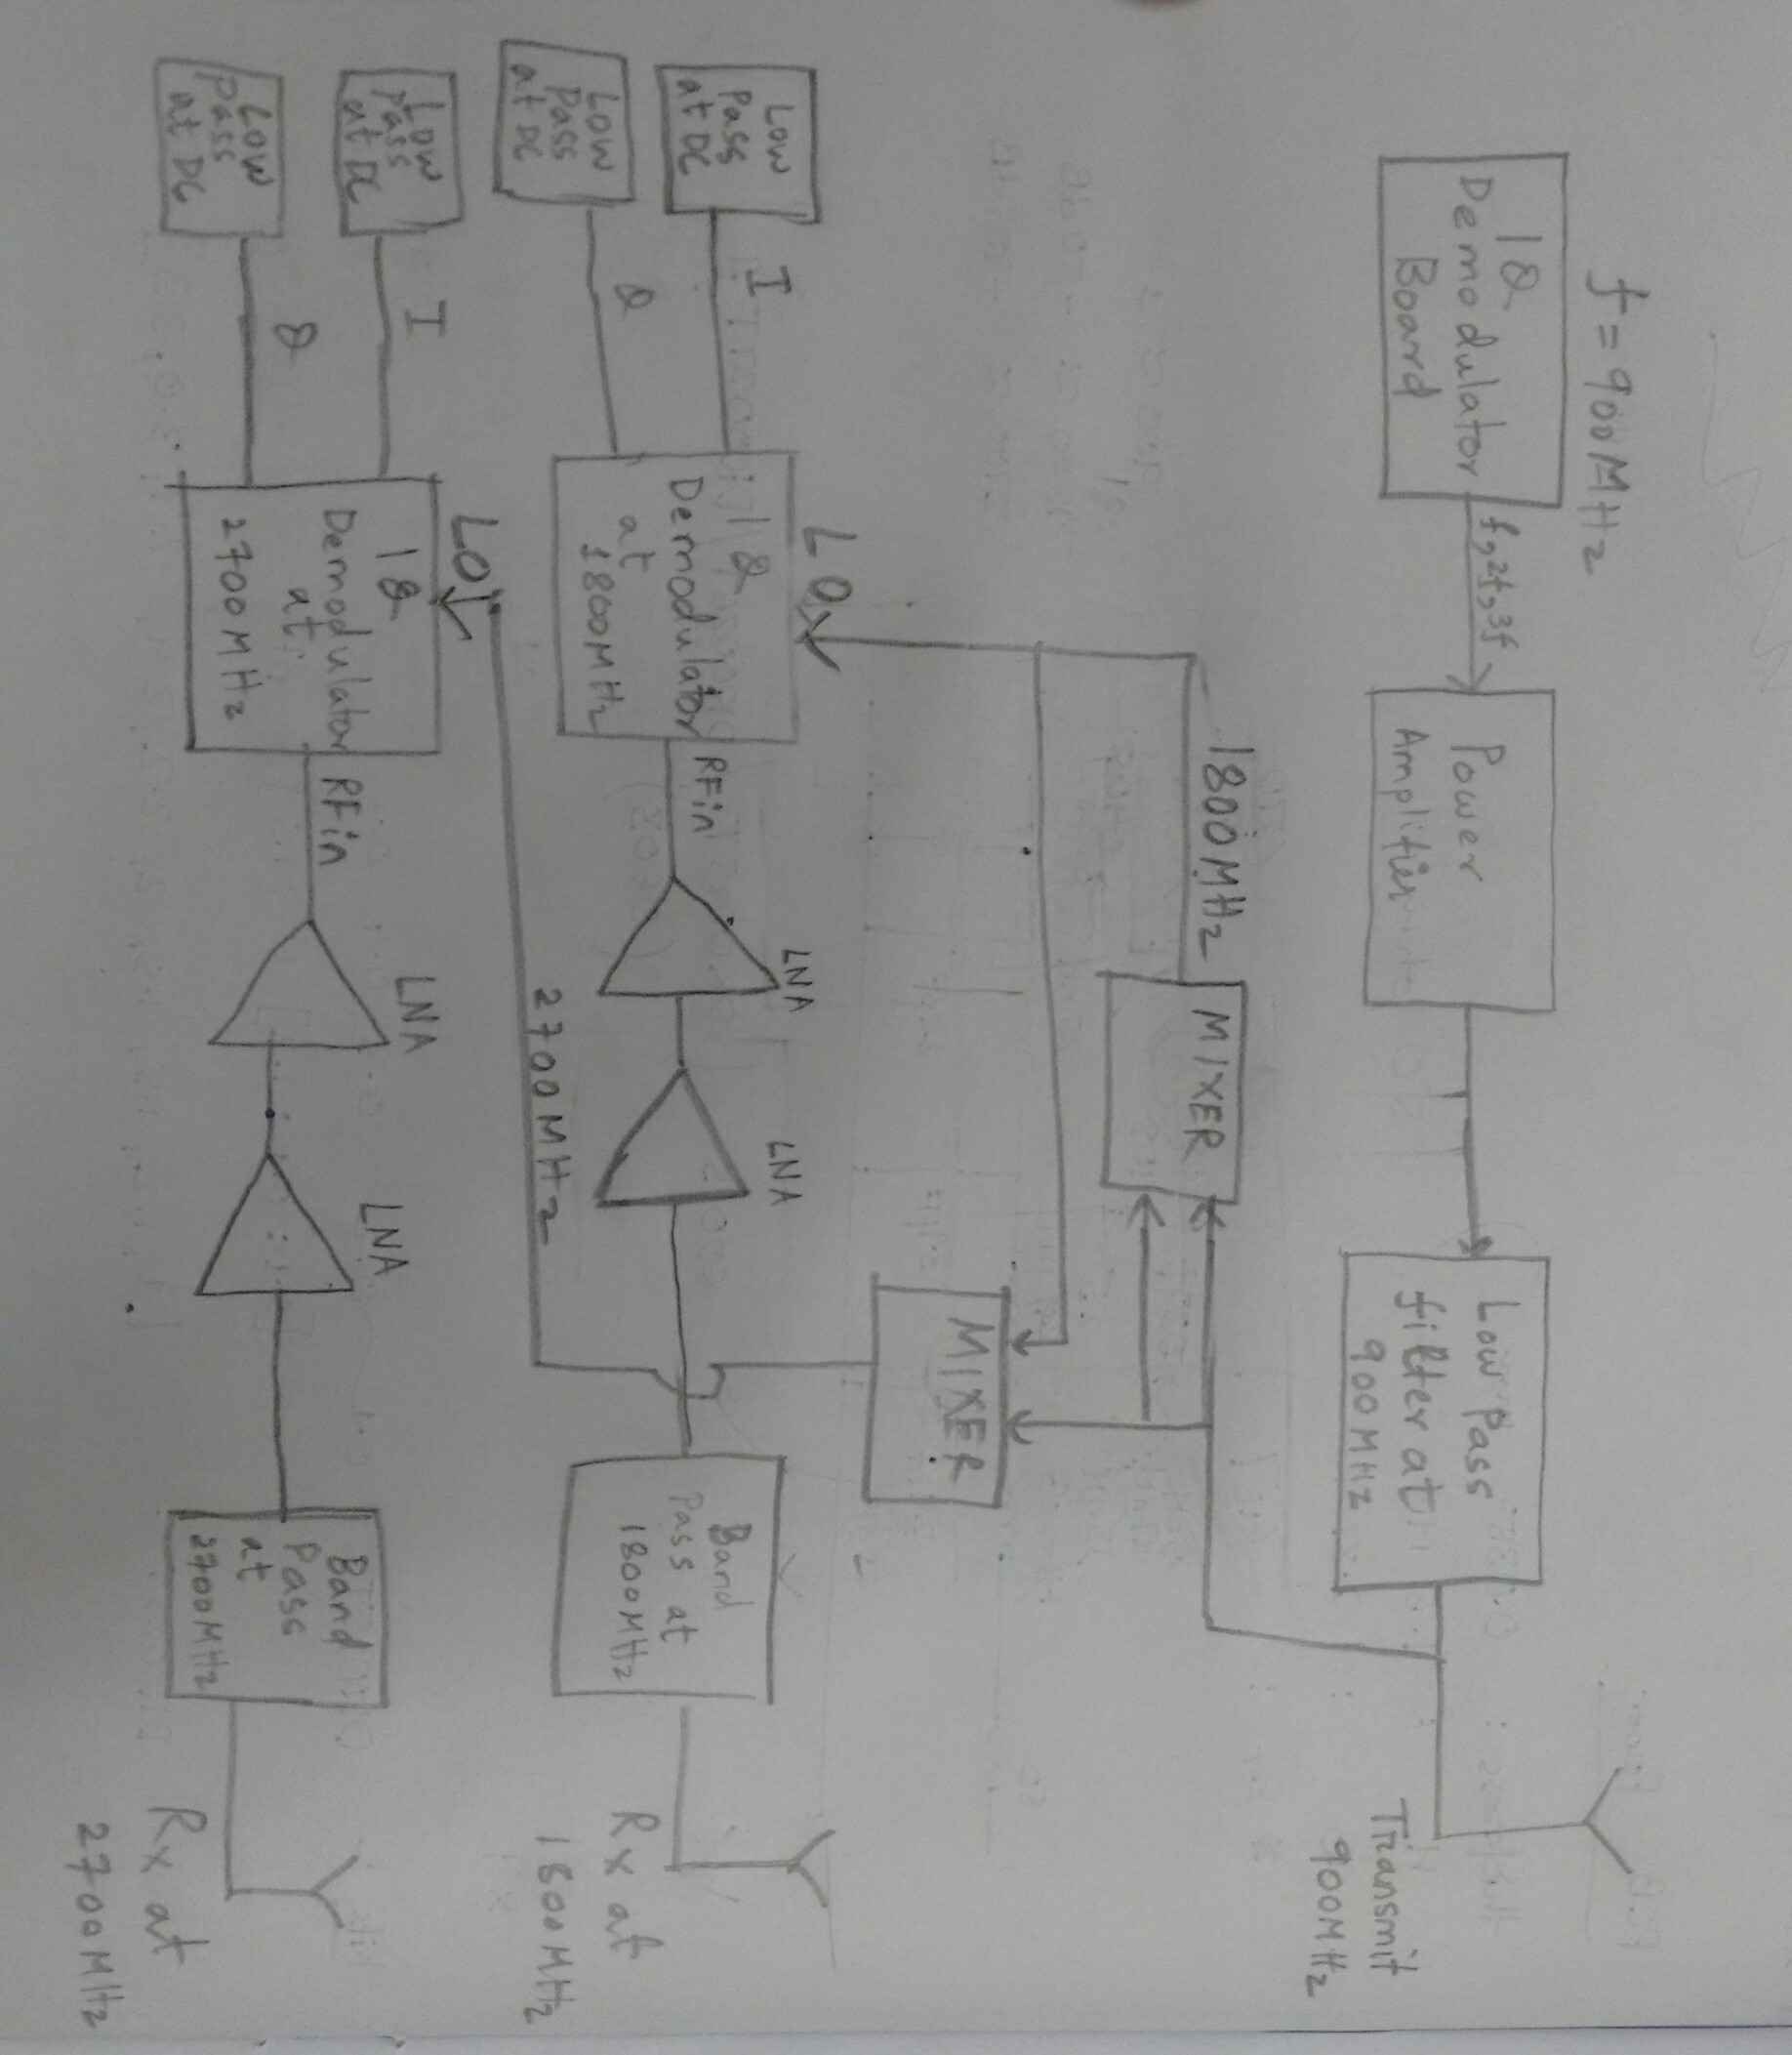 f = 900MHz
IQ
Demodulator
Board
f,2f,3f
Power
Amplifier
Low Pass
filter at
900MHz
Transmit
900MHz
1800MHz
MIXER
MIXER
LO
Low
Pass
at DC
I
IQ
Demodulator
at
1800MHz
RFin
LNA
LNA
Band
Pass at
1800MHz
Rx at
1800MHz
Q
Low
Pass
at DC
2700MHz
LO
Low
Pass
at DC
I
IQ
Demodulator
at
2700MHz
RFin
LNA
LNA
Band
Pass
at
2700MHz
Rx at
2700MHz
Q
Low
Pass
at DC